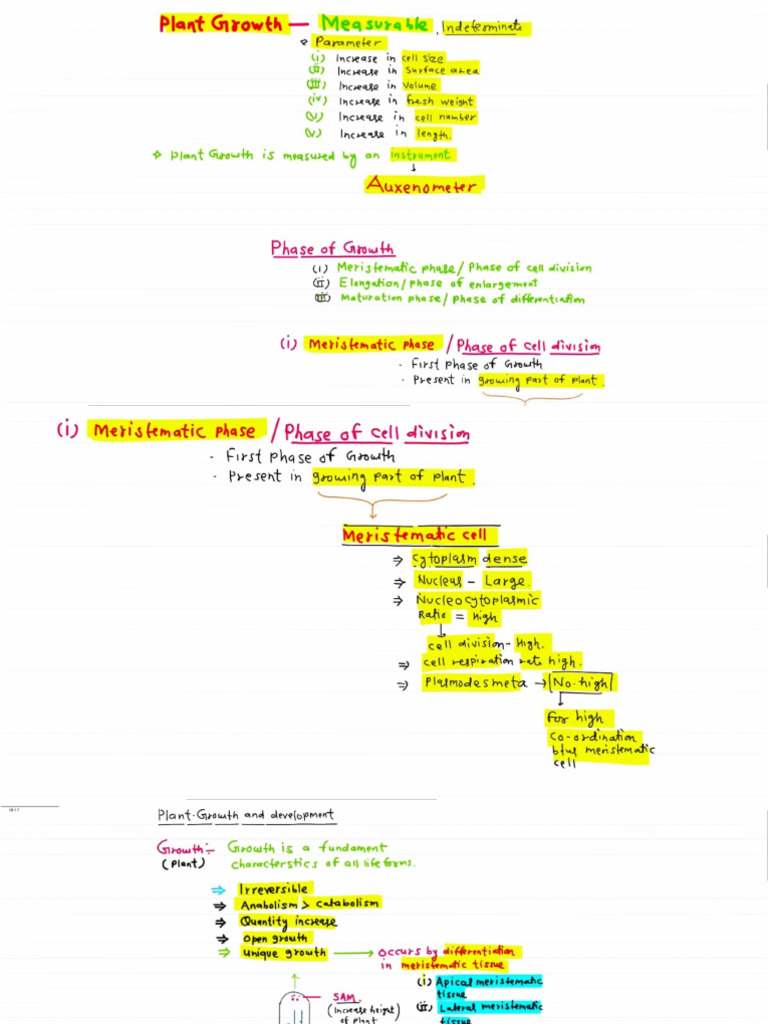 Plant Growth — Measurable, Indeterminate
Parameter
(i) Increase in cell size
(ii) Increase in surface area
(iii) Increase in volume
(iv) Increase in fresh weight
(v) Increase in cell number
(v) Increase in length.
Plant Growth is measured by an instrument
↓
Auxenometer
Phase of Growth
(i) Meristematic phase / Phase of cell division
(ii) Elongation / phase of enlargement
(iii) Maturation phase / phase of differentiation
(i) Meristematic phase / Phase of cell division
- First phase of Growth
- Present in growing part of plant.
(i) Meristematic phase / Phase of cell division
- First phase of Growth
- Present in growing part of plant.
Meristematic cell
⇒ Cytoplasm dense
⇒ Nucleus - Large.
⇒ Nucleocytoplasmic
Ratio = High
↓
cell division - High.
⇒ cell respiration rate high.
⇒ Plasmodesmeta → No. high
↓
For high
co-ordination
btw meristematic
cell
Plant-Growth and development
Growth:- Growth is a fundament
(Plant) characterstics of all life forms.
⇒ Irreversible
⇒ Anabolism > catabolism
⇒ Quantity increase
⇒ Open growth
⇒ unique growth → occurs by differentiation
in meristematic tissue
(i) Apical meristematic
tissue
SAM
(ii) Lateral meristematic
(Increase height
of plant
tissue